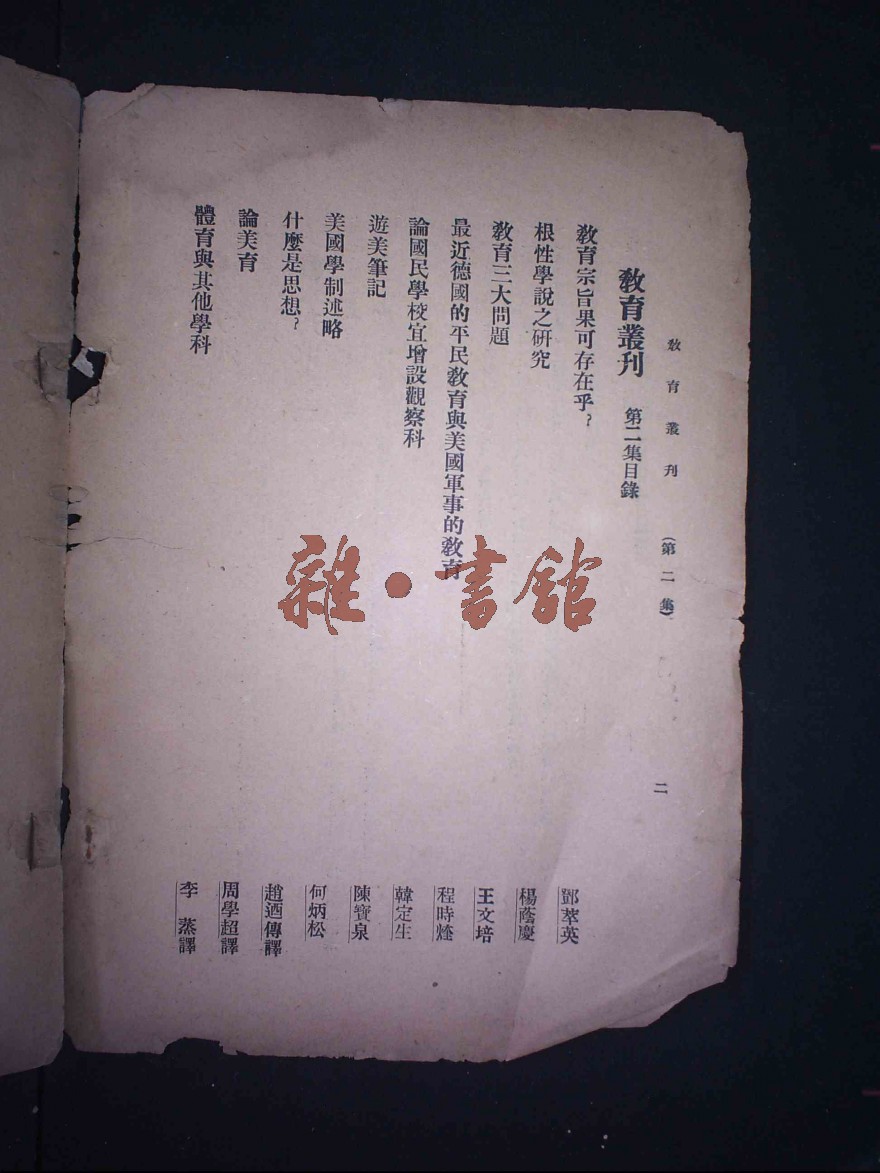 教育叢刊　（第二集）　二
教育叢刊　第二集目錄
教育宗旨果可存在乎？　鄧萃英
根性學說之研究　楊蔭慶
教育三大問題　王文培
最近德國的平民教育與美國軍事的教育　程時煃
論國民學校宜增設觀察科　韓定生
遊美筆記　陳寶泉
美國學制述略　何炳松
什麼是思想？　趙迺傳譯
論美育　周學超譯
體育與其他學科　李蒸譯
雜·書館